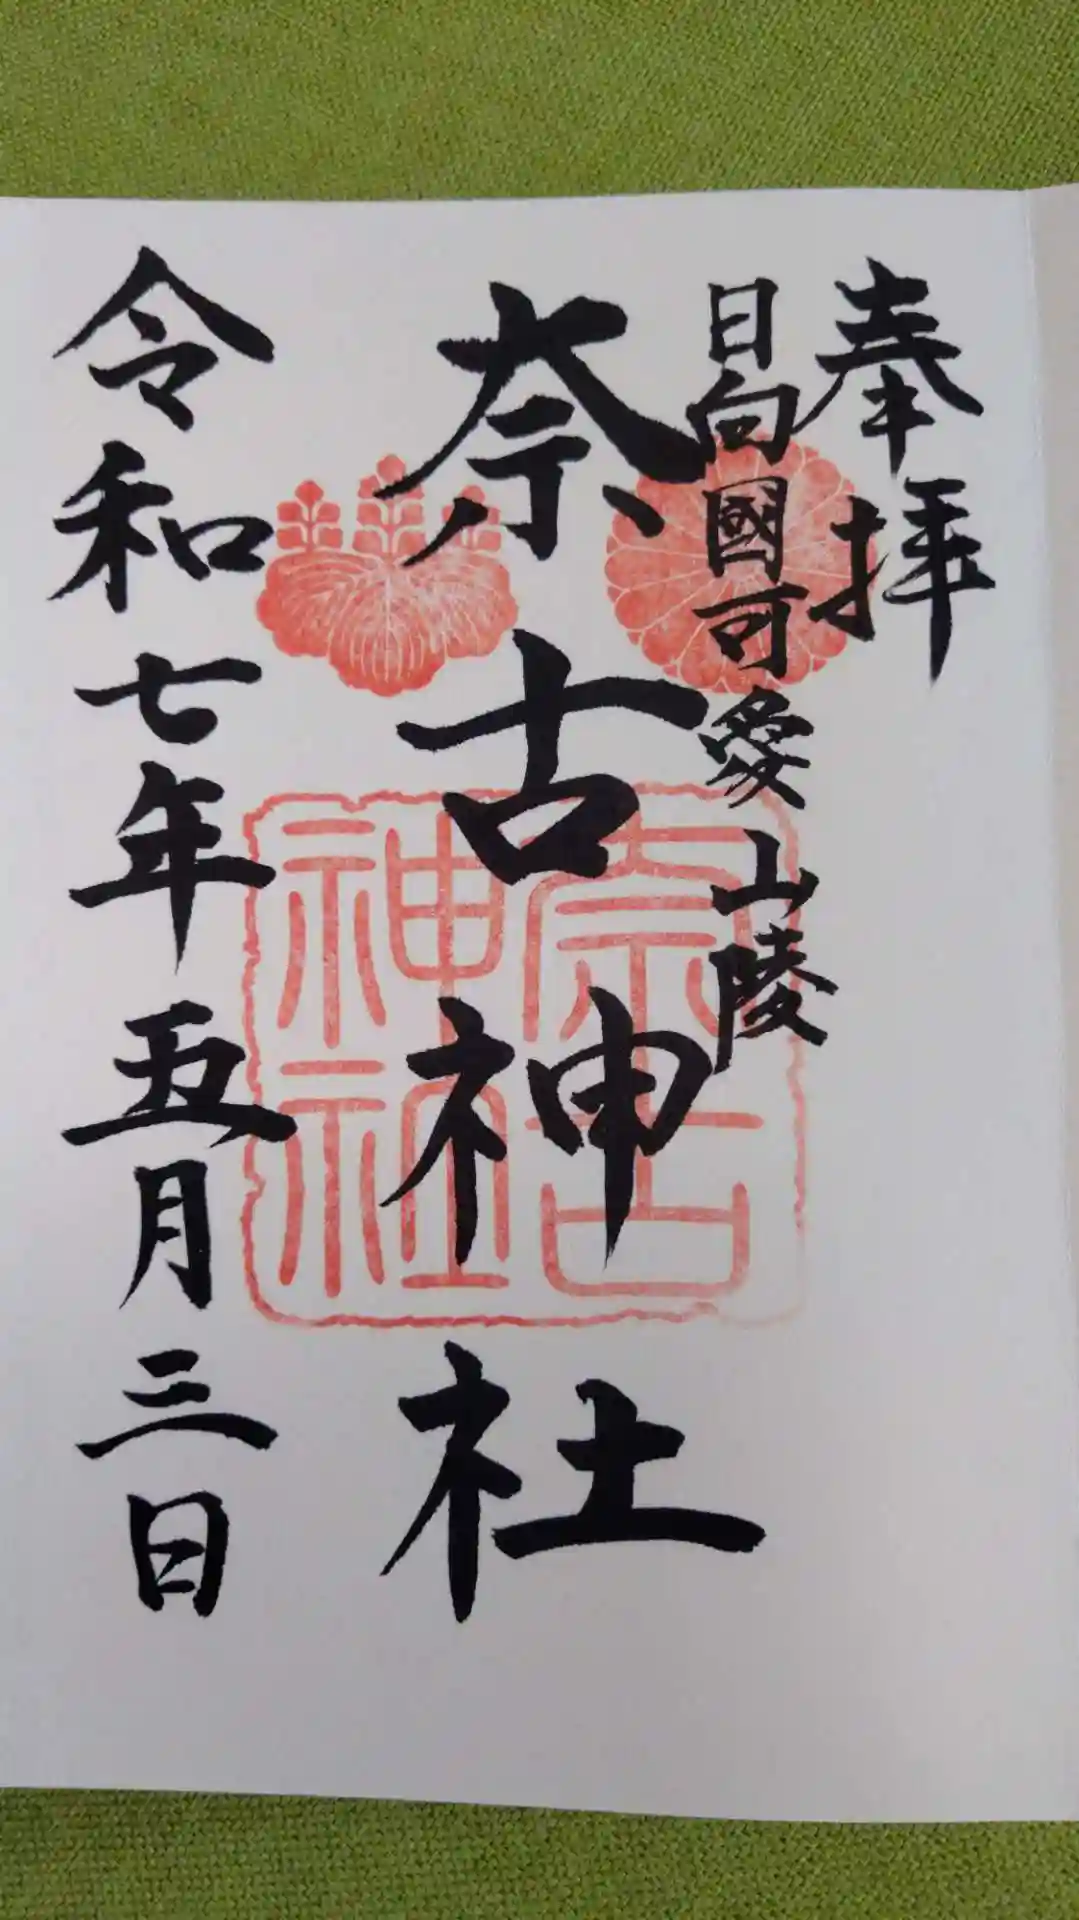 奉拝
日向國可愛山陵
奈古神社
令和七年五月三日
奈古
神社